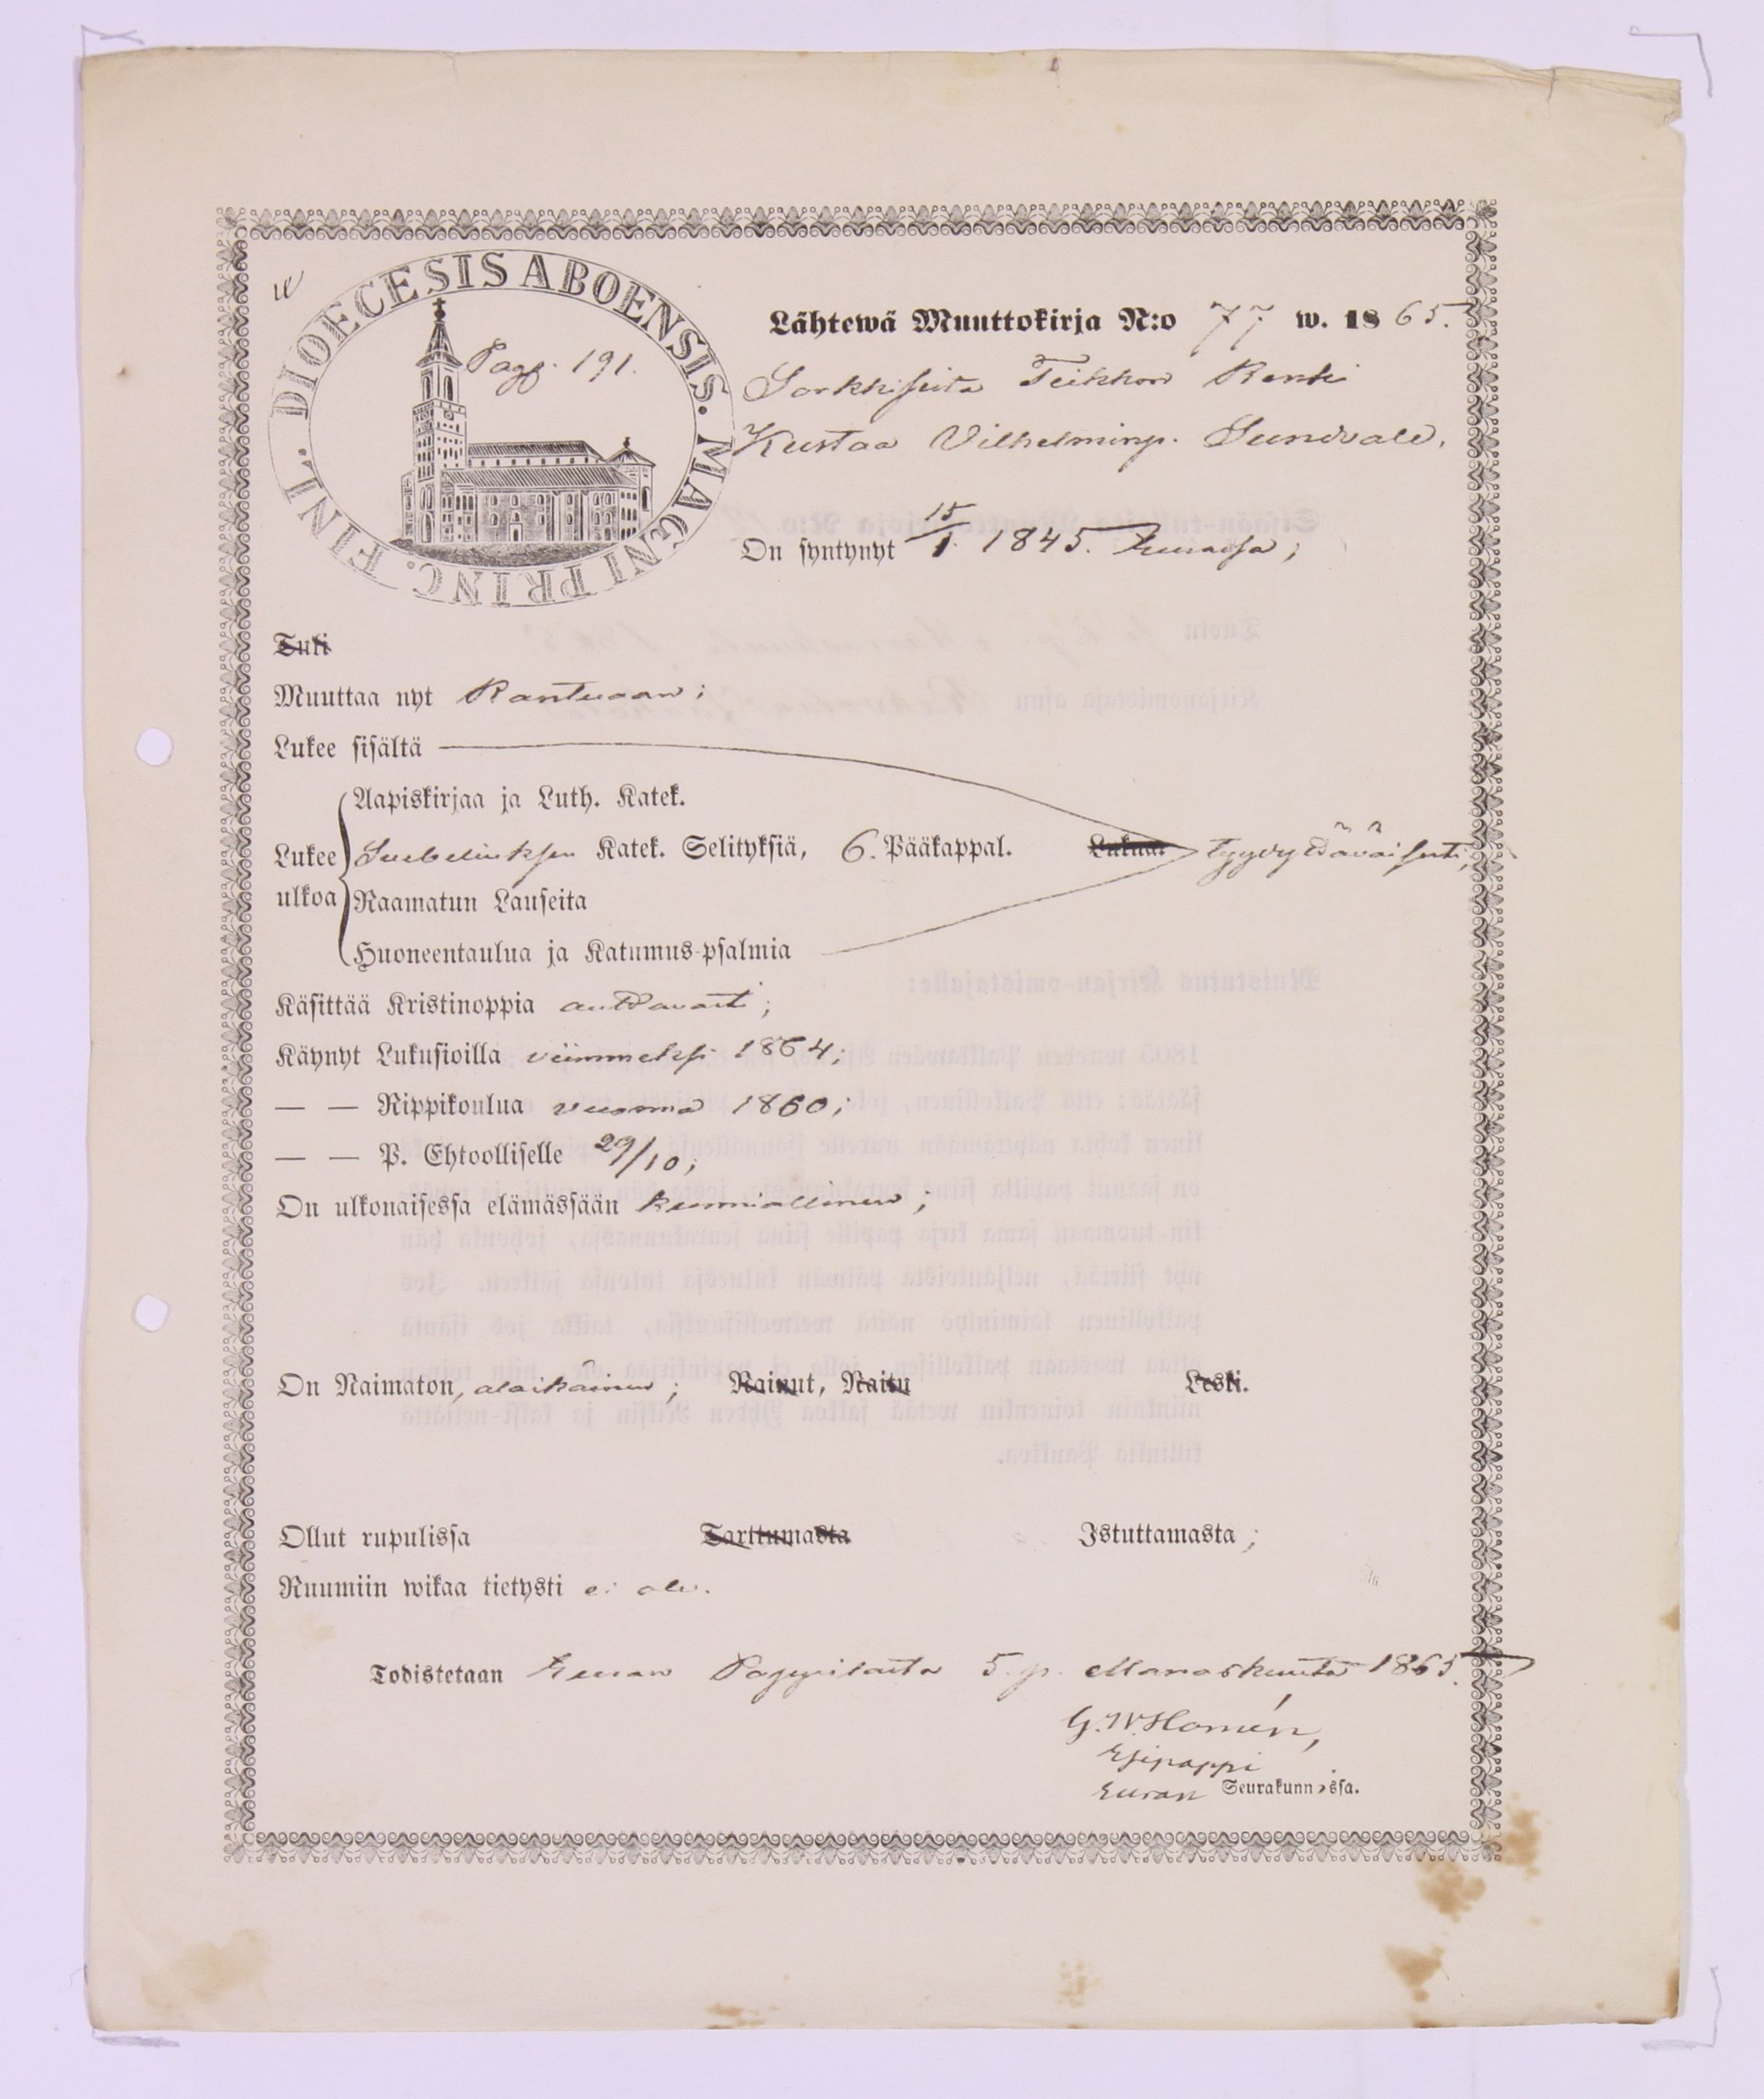 w
DIOECESIS ABOENSIS. MAGNI PRINC. FINL.
Pag. 191.
Lähtewä Muuttokirja N:o 77 w. 1865.
Sorkkisista Teikkon Renki
Kustaa Vilhelminp. Sundvall,
On syntynyt 15/1. 1845. Eurassa;
Tuli
Muuttaa nyt Kantuaan;
Lukee sisältä
Aapiskirjaa ja Luth. Katek.
Lukee ulkoa Svebeliuksen Katek. Selityksiä, 6. Pääkappal. Lukua: tyydyttäväisesti;
Raamatun Lauseita
Huoneentaulua ja Katumus-psalmia
Käsittää Kristinoppia auttavasti;
Käynyt Lukusioilla viimmeksi 1864;
— — Rippikoulua vuonna 1860;
— — P. Ehtoolliselle 29/10;
On ulkonaisessa elämässään kunniallinen;
On Naimaton, alaikäinen; Nainut, Naitu Leski.
Ollut rupulissa Tarttumasta Istuttamasta;
Ruumiin wikaa tietysti ei ole.
Todistetaan Euran Pappilasta 5. p. Marraskuuta 1865.
G. W. Homén,
Esipappi
Euran Seurakunnassa.